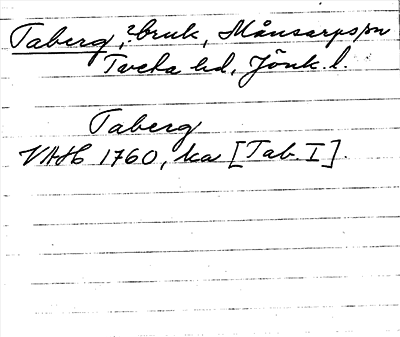 Taberg, ?bruk, Månsarps sn
Tveta hd, Jönk. l.
Taberg
VAH 1760, ka [Tab. I].